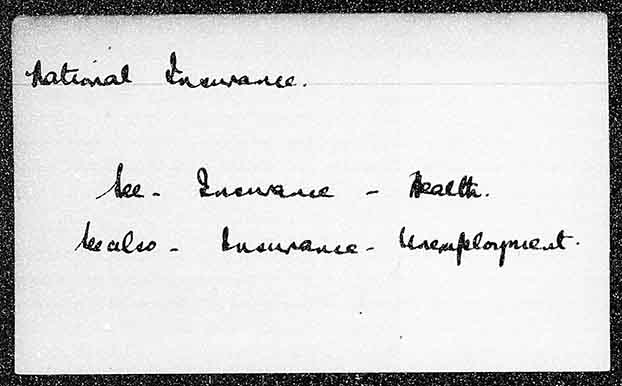 National Insurance.
See - Insurance - Health.
See also - Insurance - Unemployment.